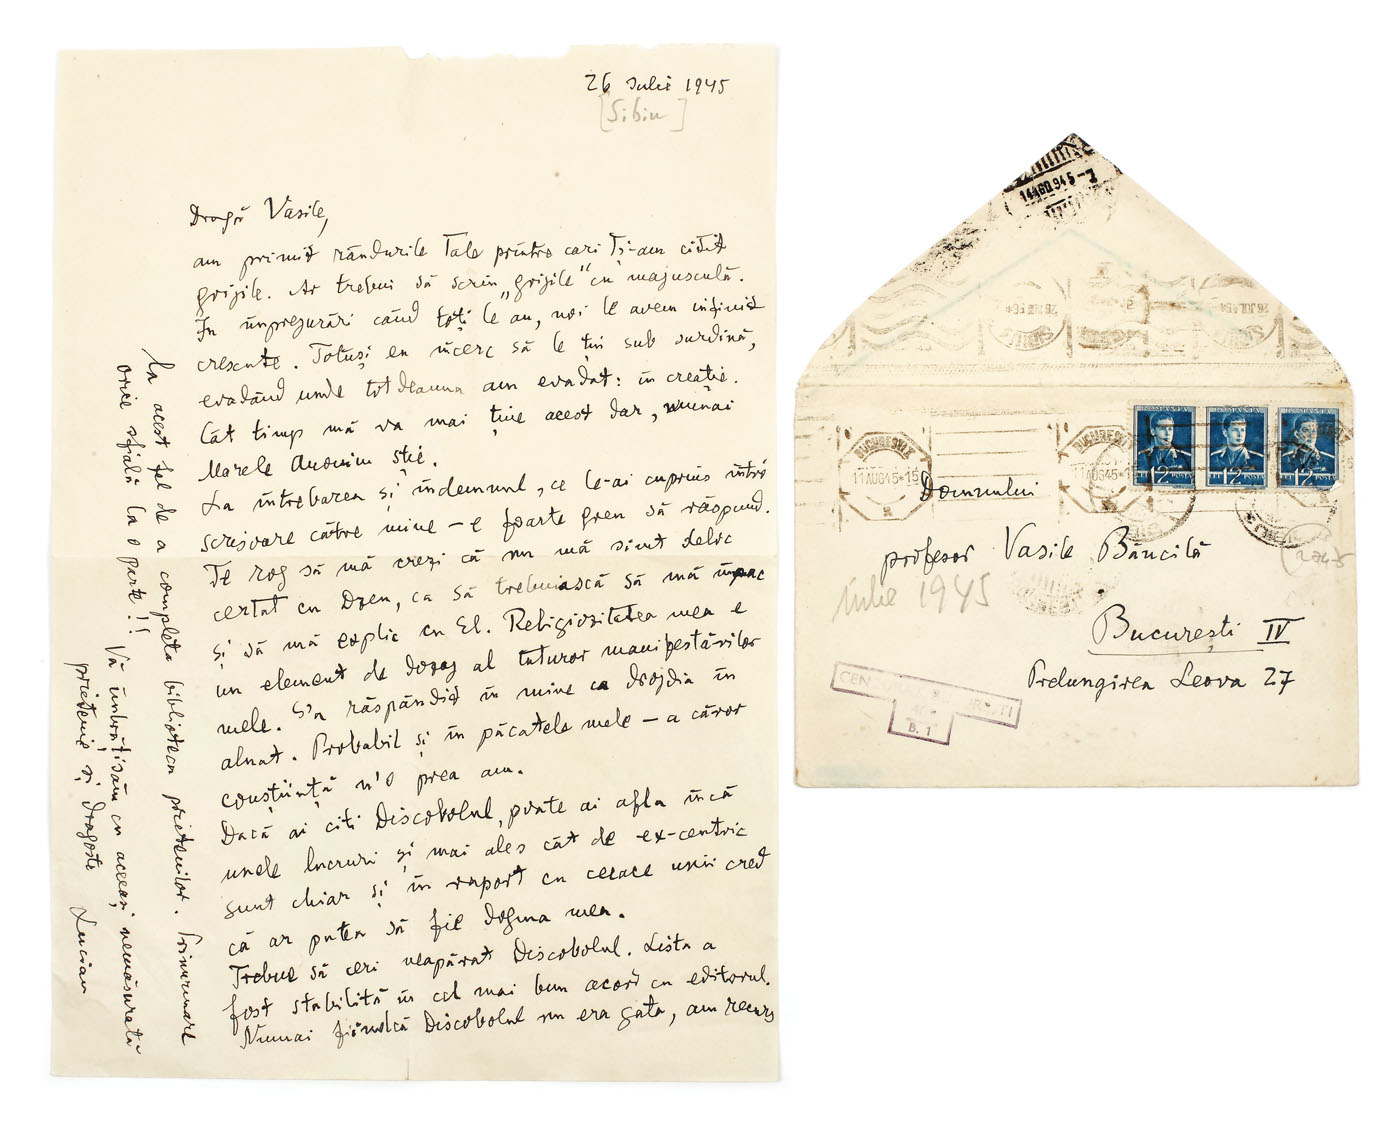 26 Iulie 1945
[Sibiu]
Dragă Vasile,
am primit rândurile Tale printre cari Ți-am citit
grijile. Ar trebui să scriu „grijile“ cu majusculă.
În împrejurări când toți le au, noi le avem infinit
crescute. Totuși eu încerc să le țin sub surdină,
evadând unde totdeauna am evadat: în creație.
Cât timp mă va mai ține acest dar, numai
Marele Anonim știe.
La întrebarea și îndemnul, ce le-ai cuprins într'o
scrisoare către mine – e foarte greu să răspund.
Te rog să mă crezi că nu mă simt deloc
certat cu Dzeu, ca să trebuiască să mă împac
și să mă explic cu El. Religiozitatea mea e
un element de dozaj al tuturor manifestărilor
mele. S'a răspândit în mine ca drojdia în
aluat. Probabil și în păcatele mele – a căror
conștiință n'o prea am.
Dacă ai citi Discobolul, poate ai afla încă
unele lucruri și mai ales cât de ex-centric
sunt chiar și în raport cu ceeace unii cred
că ar putea să fie dogma mea.
Trebue să ceri neapărat Discobolul. Lista a
fost stabilită în cel mai bun acord cu editorul.
Numai fiindcă Discobolul nu era gata, am recurs
la acest fel de a completa biblioteca prietenilor.
orice sfială la o parte!! Vă îmbrățișăm cu aceeași nemăsurată
prietenie și dragoste Lucian
14 AUG 945
BUCUREȘTI 2
11 AUG 45 * 15
BUCUREȘTI
11 AUG 45 * 15
ROMANIA
12 LEI
ROMANIA
12 LEI
ROMANIA
12 LEI
Domnului
profesor Vasile Băncilă
Iulie 1945
București IV
Prelungirea Leova 27
B. 1